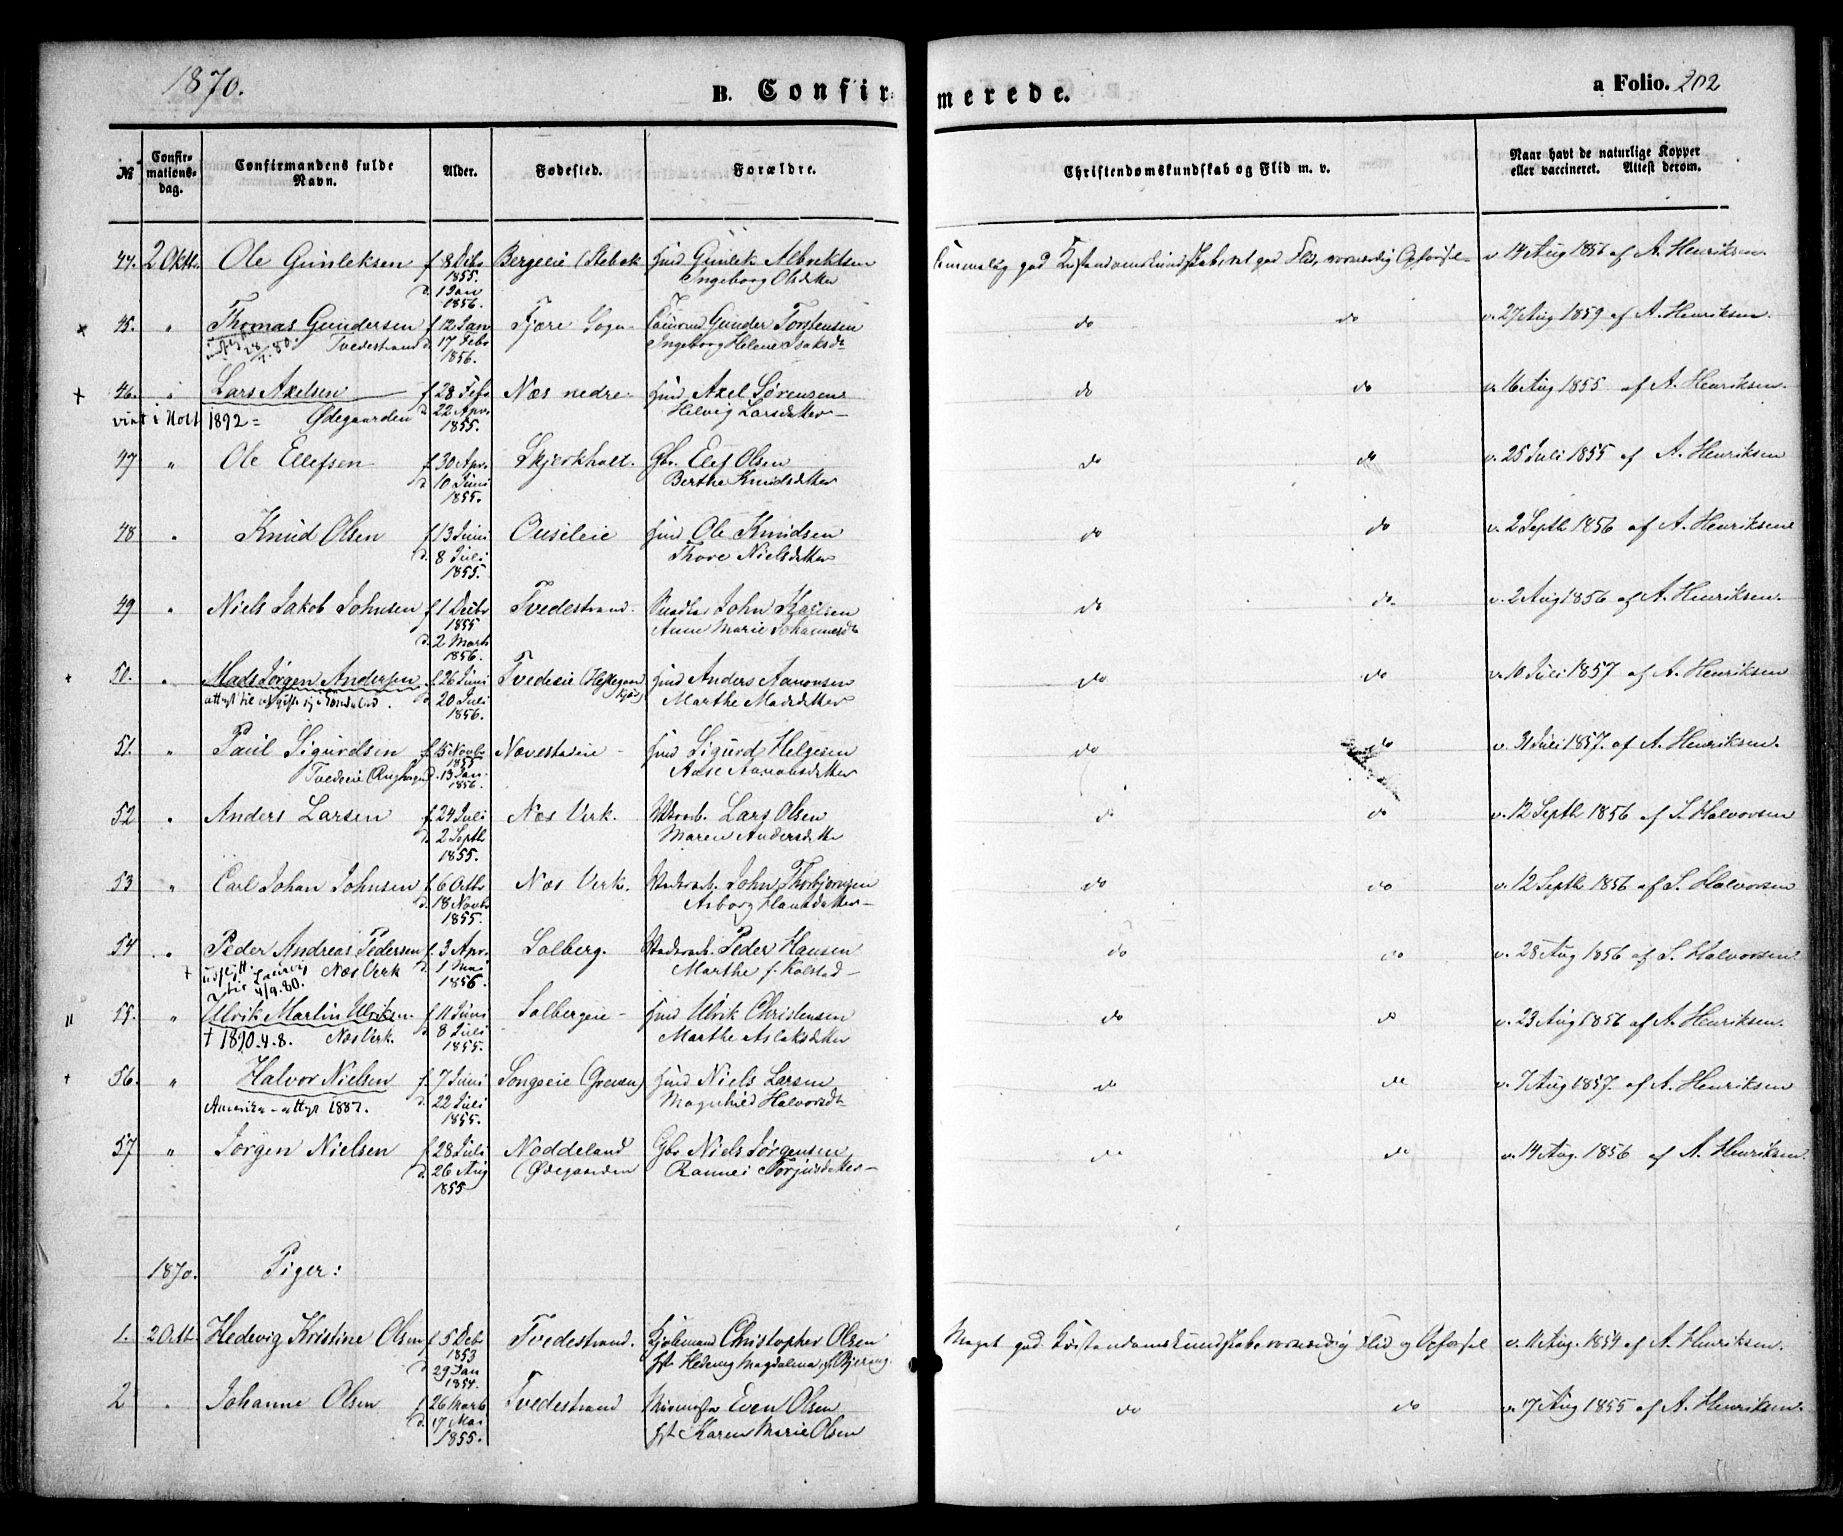 1870.
B. Confirmerede.
a Folio. 202
№
Confirmationsdag.
Confirmandens fulde Navn.
Alder.
Fødested.
Forældre.
Christendomskundskab og Flid m. v.
Naar havt de naturlige Kopper eller vaccineret. Attest derom.
44. 2 Oktb. Ole Gunleksen f. 8 Decbr 1855. d. 1 Jan 1856. Bergeeie (Stebek Hmd Gunlek Albrektsen
Ingeborg Olsdatter
god Kristendomskundskab, god Flid, Opførsel v. 14 Aug 1856 af A. Henriksen.
45. " Thomas Gundersen f. 12 Jan d. 17 Febr 1856. Fjære Sogn Gunder Torstensen
28/4. 80. Tvedestrand Ingeborg Helene Isaksdt
do do v. 27 Aug 1859 af A. Henriksen.
46. " Lars Axelsen f. 28 Feb d. 22 Apr. 1855. Næs nedre Hmd Axel Sørensen
viet i Holt 1892 = Ødegaarden Helvig Larsdatter
do do v. 16 Aug 1855 af A. Henriksen.
47 " Ole Ellefsen f. 30 Apr. d. 10 Juni 1855. Skjerkholt. Gbr. Elef Olsen
Berthe Knudsdatter
do do v. 25 Juli 1855 af A. Henriksen
48 " Knud Olsen f. 13 Juni d. 8 Juli 1855. Ouseleie Hmd Ole Knudsen
Thore Nielsdatter
do do v. 2 Septb 1856 af A. Henriksen
49 " Niels Jakob Johnsen f. 1 Decbr 1855 d. 2 Marts 1856. Tvedestrand. John
Anne Marie Johannesdt
do do v. 2 Aug 1856 af A. Henriksen.
50. " Mads Jørgen Andersen f. 26 Juni d. 20 Juli 1856. Tvedeeie Hmd Anders Aanonsen
attest til at gifte sig Marthe Madsdatter
do do v. 10 Juli 1857 af A. Henriksen
51. " Paul Sigurdsen f. 15 Novb 1855 d. 13 Jan. 1856. Nævestadeie Hmd Sigurd Helgesen
Tvedeeie Aase Aanonsdatter
do do v. 31 Juli 1857. af A. Henriksen.
52 " Anders Larsen f. 24 Juli d. 2 Septb 1855. Næs Verk. Lars Olsen
Maren Andersdatter
do do v. 12 Septb 1856 af S. Halvorsen
53 " Carl Johan Johnsen f. 6 Octbr d. 18 Novb 1855. Næs Verk. John Thorbjørnsen
Asborg Hansdatter
do do v. 12 Septb 1856 af S. Halvorsen
54 " Peder Andreas Pedersen f. 3 Apr. d. 1 Mai 1856. Solberg. Peder Hansen
udflytt. Laurvig 4/9. 80. Næs Verk Marthe f. Kolstad
do do v. 28 Aug 1856 af S. Halvorsen
55. " Ulrik Martin Ulriksen f. 11 Juni d. 8 Juli 1855. Solbergeie Hmd Ulrik Christensen
† 1890. 4. 8. Næs Verk. Marthe Aslaksdatter
do do v. 23 Aug 1856 af A. Henriksen.
56. " Halvor Nielsen f. 7 Juni d. 22 Juli 1855. Songeeie (Greven) Hmd Niels Larsen
Amerika - attest 1887. Magnhild Halvorsdt
do do v. 7 Aug 1857. af A. Henriksen
57 " Jørgen Nielsen f. 28 Juli d. 26 Aug 1855 Noddeland (Ødegaarden Gbr Niels Jørgensen
Rannei Torjusdatter
do do v. 14 Aug. 1856 af A. Henriksen
1870. Piger:
1. 2 Oct. Hedevig Kristine Olsen f. 5 Deb 1853 d. 29 Jan 1854. Tvedestrand. Christopher Olsen
Hedevig Magdalena Bjering
Meget god Kristendomskundskab, Flid og Opførsel v. 11 Aug. 1854 af A. Henriksen.
2 " Johanne Olsen f. 26 Marts d. 17 Mai 1855. Tvedestrand Even Olsen
Karen Marie Olsen
do do v. 17 Aug 1855 af A. Henriksen.